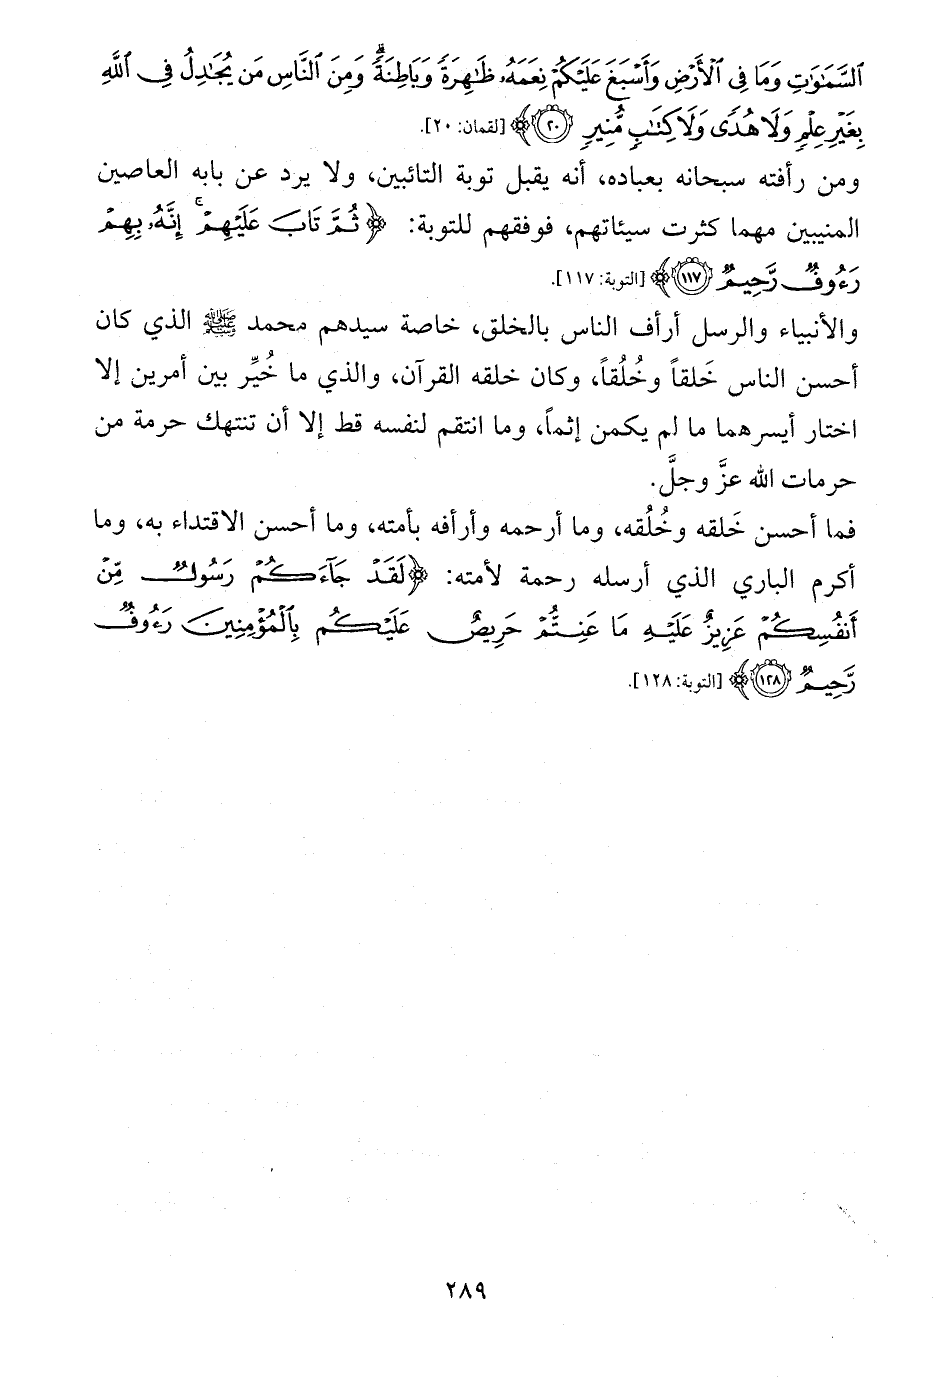 ٱلسَّمَٰوَٰتِ وَمَا فِى ٱلْأَرْضِ وَأَسْبَغَ عَلَيْكُمْ نِعَمَهُۥ ظَٰهِرَةً وَبَاطِنَةً ۗ وَمِنَ ٱلنَّاسِ مَن يُجَٰدِلُ فِى ٱللَّهِ
بِغَيْرِ عِلْمٍ وَلَا هُدًى وَلَا كِتَٰبٍ مُّنِيرٍ ﴿٢٠﴾ [لقمان: ٢٠].
ومن رأفته سبحانه بعباده، أنه يقبل توبة التائبين، ولا يرد عن بابه العاصين
المنيبين مهما كثرت سيئاتهم، فوفقهم للتوبة: ﴿ثُمَّ تَابَ عَلَيْهِمْ ۚ إِنَّهُۥ بِهِمْ
رَءُوفٌ رَّحِيمٌ ١١٧﴾ [التوبة: ١١٧].
والأنبياء والرسل أرأف الناس بالخلق، خاصة سيدهم محمد ﷺ الذي كان
أحسن الناس خَلقاً وخُلُقاً، وكان خلقه القرآن، والذي ما خُيِّر بين أمرين إلا
اختار أيسرهما ما لم يكمن إثماً، وما انتقم لنفسه قط إلا أن تنتهك حرمة من
حرمات الله عزَّ وجلَّ.
فما أحسن خَلقه وخُلُقه، وما أرحمه وأرأفه بأمته، وما أحسن الاقتداء به، وما
أكرم الباري الذي أرسله رحمة لأمته: ﴿لَقَدْ جَآءَكُمْ رَسُولٌ مِّنْ
أَنفُسِكُمْ عَزِيزٌ عَلَيْهِ مَا عَنِتُّمْ حَرِيصٌ عَلَيْكُم بِٱلْمُؤْمِنِينَ رَءُوفٌ
رَّحِيمٌ ١٢٨﴾ [التوبة: ١٢٨].
٢٨٩